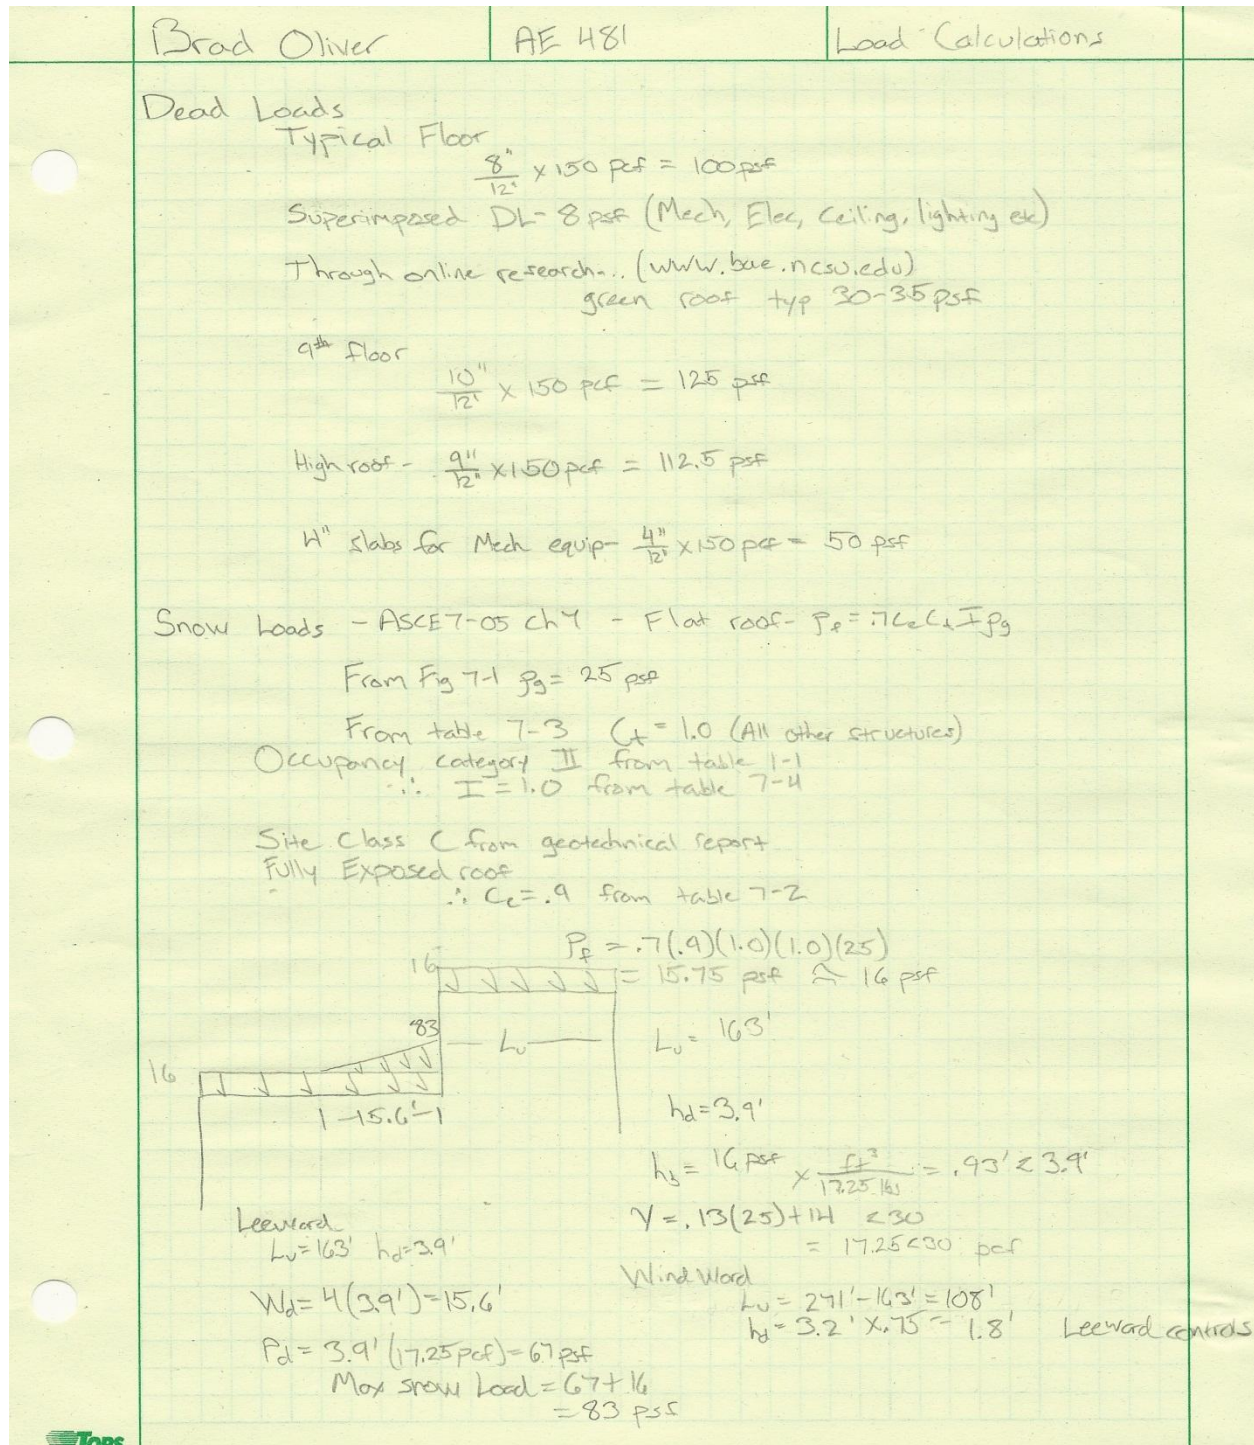 Brad Oliver AE 481 Load Calculations
Dead Loads
Typical Floor
8"/12" × 150 pcf = 100 psf
Superimposed DL- 8 psf (Mech, Elec, Ceiling, lighting etc)
Through online research... (www.bae.ncsu.edu)
green roof typ 30-35 psf
9th floor
10"/12" × 150 pcf = 125 psf
High roof - 9"/12" × 150 pcf = 112.5 psf
4" slabs for Mech equip- 4"/12" × 150 pcf = 50 psf
Snow Loads - ASCE 7-05 Ch 7 - Flat roof- Pf = .7CeCtIpg
From Fig 7-1 pg = 25 psf
From table 7-3 Ct = 1.0 (All other structures)
Occupancy category II from table 1-1
∴ I = 1.0 from table 7-4
Site Class C from geotechnical report
Fully Exposed roof
∴ Ce = .9 from table 7-2
Pf = .7(.9)(1.0)(1.0)(25)
16 = 15.75 psf ≈ 16 psf
83 Lu Lu = 163'
16
15.6' hd = 3.9'
hb = 16 psf × ft³/17.25 lbs = .93' < 3.9'
Leeward γ = .13(25)+14 < 30
Lu = 163' hd = 3.9' = 17.25 < 30 pcf
Wind Ward
Wd = 4(3.9') = 15.6' Lu = 271' - 163' = 108'
hd = 3.2' × .75 = 1.8' Leeward controls
Pd = 3.9' (17.25 pcf) = 67 psf
Max snow Load = 67 + 16
= 83 psf
TOPS